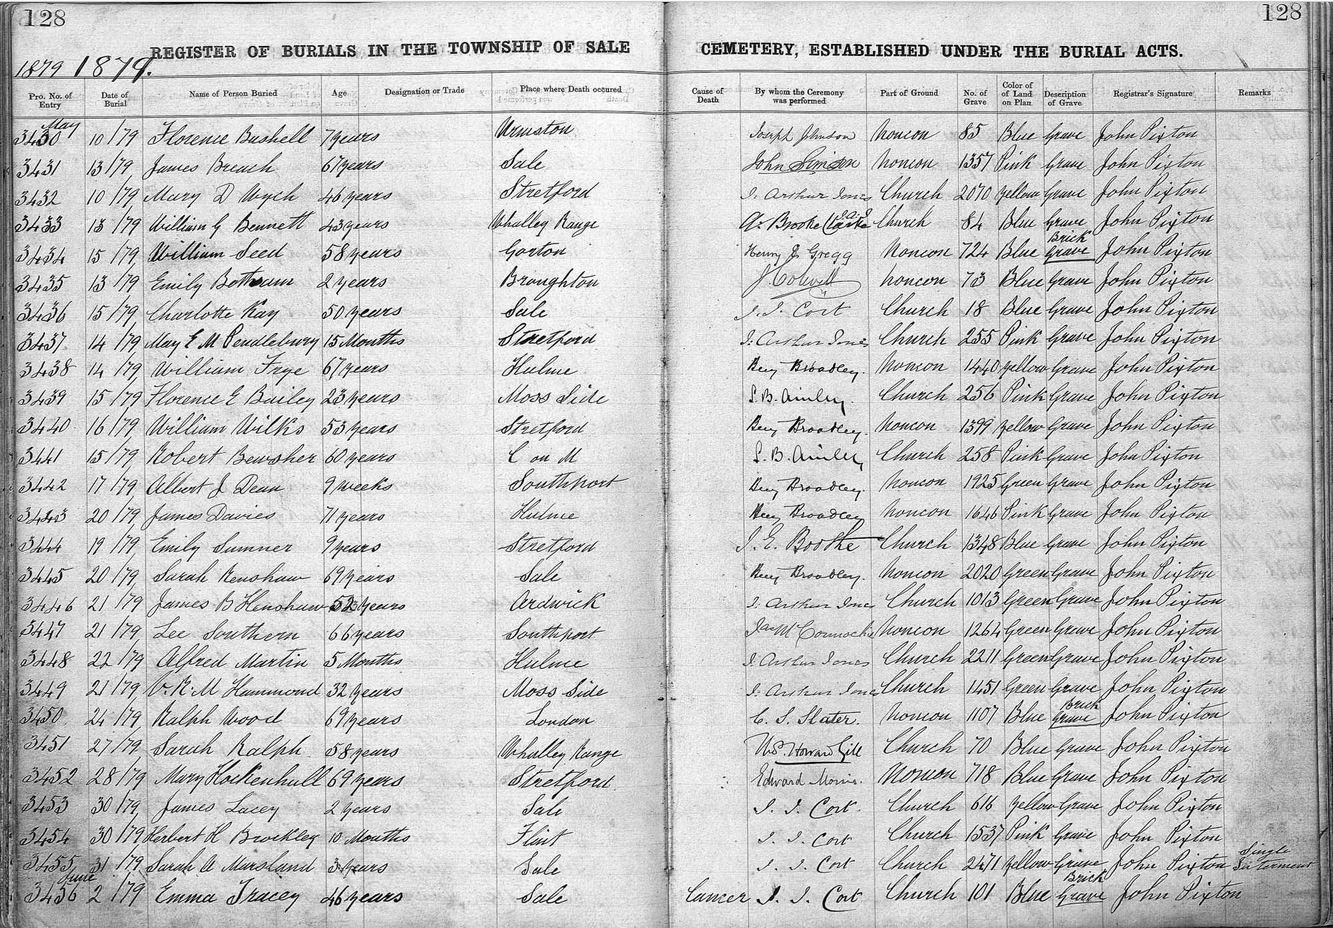 128 128
REGISTER OF BURIALS IN THE TOWNSHIP OF SALE CEMETERY, ESTABLISHED UNDER THE BURIAL ACTS.
1879 1879.
Pro. No. of Entry Date of Burial Name of Person Buried Age Designation or Trade Place where Death occured Cause of Death By whom the Ceremony was performed Part of Ground No. of Grave Color of of Land on Plan Description of Grave Registrar's Signature Remarks
May
3430 10/79 Florence Bushell 7 years Urmston Joseph Johnson Noncon 85 Blue Grave John Pixton
3431 13/79 James Breach 67 years Sale John Simson Noncon 1357 Pink Grave John Pixton
3432 10/79 Mary D Wych 46 years Stretford J. Arthur Jones Church 2070 Yellow Grave John Pixton
3433 13/79 William G Bennett 43 years Whalley Range Brooke Church 84 Blue Grave John Pixton
3434 15/79 William Seed 58 years Gorton Henry J. Gregg Noncon 724 Blue Brick Grave John Pixton
3435 13/79 Emily 2 years Broughton J Colwell Noncon 73 Blue Grave John Pixton
3436 15/79 Charlotte Kay 50 years Sale J. J. Cort Church 18 Blue Grave John Pixton
3437 14/79 May E M Pendlebury 15 Months Stretford J. Arthur Jones Church 255 Pink Grave John Pixton
3438 14/79 William Frye 67 years Hulme Benj Broadley. Noncon 1440 Yellow Grave John Pixton
3439 15/79 Florence E Bailey 23 years Moss Side S. B. Ainley. Church 256 Pink Grave John Pixton
3440 16/79 William Wilks 53 years Stretford Benj Broadley. Noncon 1399 Yellow Grave John Pixton
3441 15/79 Robert Bewsher 60 years C on M S. B. Ainley Church 258 Pink Grave John Pixton
3442 17/79 Albert J Dean 9 weeks Southport Benj Broadley. Noncon 1925 Green Grave John Pixton
3443 20/79 James Davies 71 years Hulme Benj Broadley Noncon 1646 Pink Grave John Pixton
3444 19/79 Emily Sumner 9 years Stretford J. E. Boothe Church 1348 Blue Grave John Pixton
3445 20/79 Sarah Renshaw 69 years Sale Benj Broadley. Noncon 2020 Green Grave John Pixton
3446 21/79 James B Henshaw 52 years Ardwick J. Arthur Jones Church 1013 Green Grave John Pixton
3447 21/79 Lee Southern 66 years Southport Jas McCormack Noncon 1264 Green Grave John Pixton
3448 22/79 Alfred Martin 5 Months Hulme J. Arthur Jones Church 2211 Green Grave John Pixton
3449 21/79 M Hammond 32 years Moss Side J. Arthur Jones Church 1451 Green Grave John Pixton
3450 24/79 Ralph Wood 69 years London C. S. Slater. Noncon 1107 Blue Brick Grave John Pixton
3451 27/79 Sarah Ralph 58 years Whalley Range Howard Gill Church 70 Blue Grave John Pixton
3452 28/79 Mary Hockenhull 69 years Stretford Edward Morris. Noncon 718 Blue Grave John Pixton
3453 30/79 James Lacey 2 years Sale J. J. Cort Church 616 Yellow Grave John Pixton
3454 30/79 Herbert H Brockley 10 Months Flint J. J. Cort Church 1537 Pink Grave John Pixton
3455 31/79 Sarah A Marsland 3 years Sale J. J. Cort Church 2471 Yellow Grave John Pixton Single Interment
June
3456 2/79 Emma Tracey 46 years Sale Cancer J. J. Cort Church 101 Blue Brick Grave John Pixton